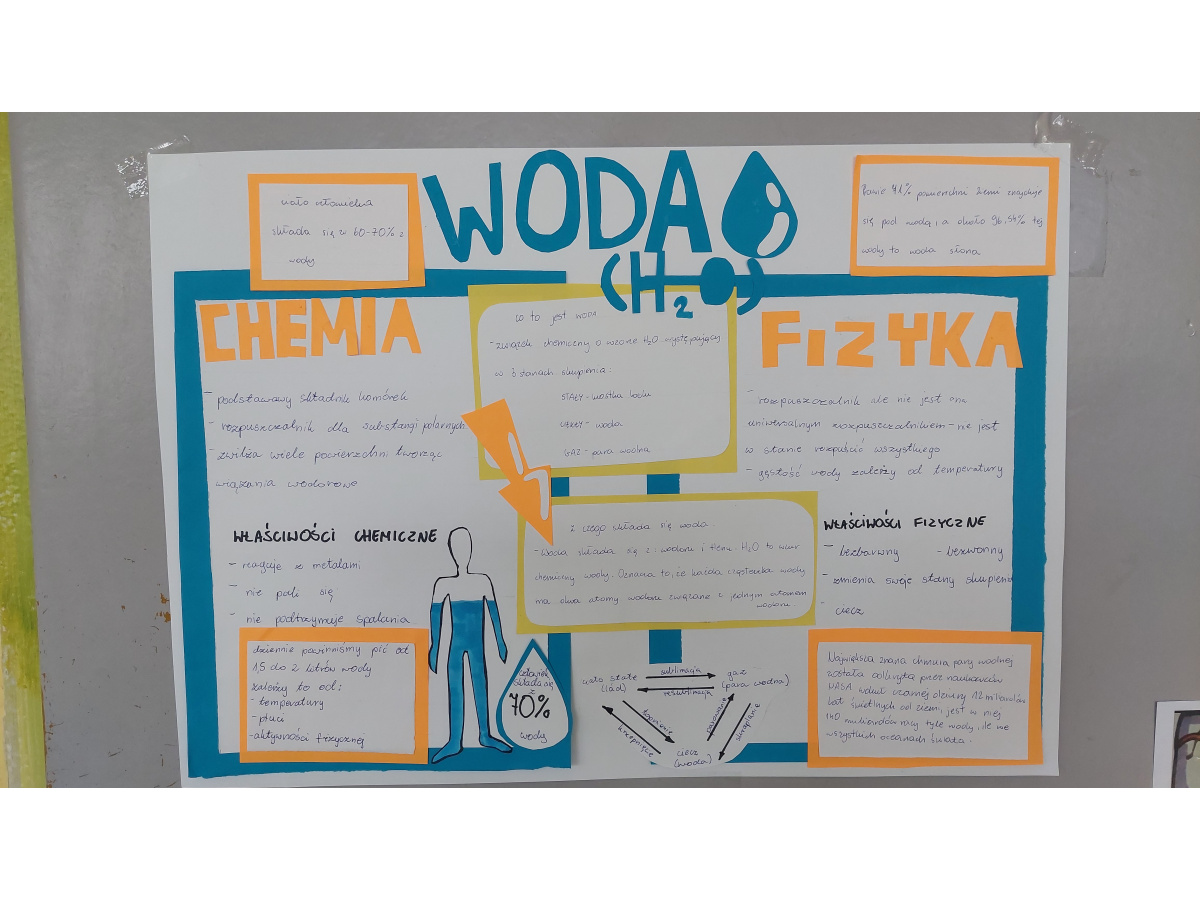 WODA
(H2O)
ciało człowieka
składa się w 60-70% z
wody
Prawie 71% powierzchni ziemi znajduje
się pod wodą, a około 96,54% tej
wody to woda słona
CHEMIA
- podstawowy składnik komórek
- rozpuszczalnik dla substancji polarnych
- zwilża wiele powierzchni tworząc
wiązania wodorowe
WŁAŚCIWOŚCI CHEMICZNE
- reaguje z metalami
- nie pali się
- nie podtrzymuje spalania
dziennie powinniśmy pić od
1,5 do 2 litrów wody
zależy to od:
- temperatury
- płuci
- aktywności fizycznej
co to jest WODA
- związek chemiczny o wzorze H2O występujący
w 3 stanach skupienia:
STAŁY - kostka lodu
CIEKŁY - woda
GAZ - para wodna
z czego składa się woda
- Woda składa się z: wodoru i tlenu. H2O to wzór
chemiczny wody. Oznacza to, że każda cząsteczka wody
ma dwa atomy wodoru związane z jednym atomem
wodoru
człowiek
składa się
z
70%
wody
ciało stałe
(lód)
sublimacja
resublimacja
gaz
(para wodna)
topnienie
krzepnięcie
parowanie
skraplanie
ciecz
(woda)
FIZYKA
- rozpuszczalnik ale nie jest ona
uniwersalnym rozpuszczalnikiem - nie jest
w stanie rozpuścić wszystkiego
- gęstość wody zależy od temperatury
WŁAŚCIWOŚCI FIZYCZNE
- bezbarwny - bezwonny
- zmienia swoje stany skupienia
- ciecz
Największa znana chmura pary wodnej
została odkryta przez naukowców
NASA wokół czarnej dziury 12 miliardów
lat świetlnych od ziemi, jest w niej
140 miliardów razy tyle wody, ile we
wszystkich oceanach świata.